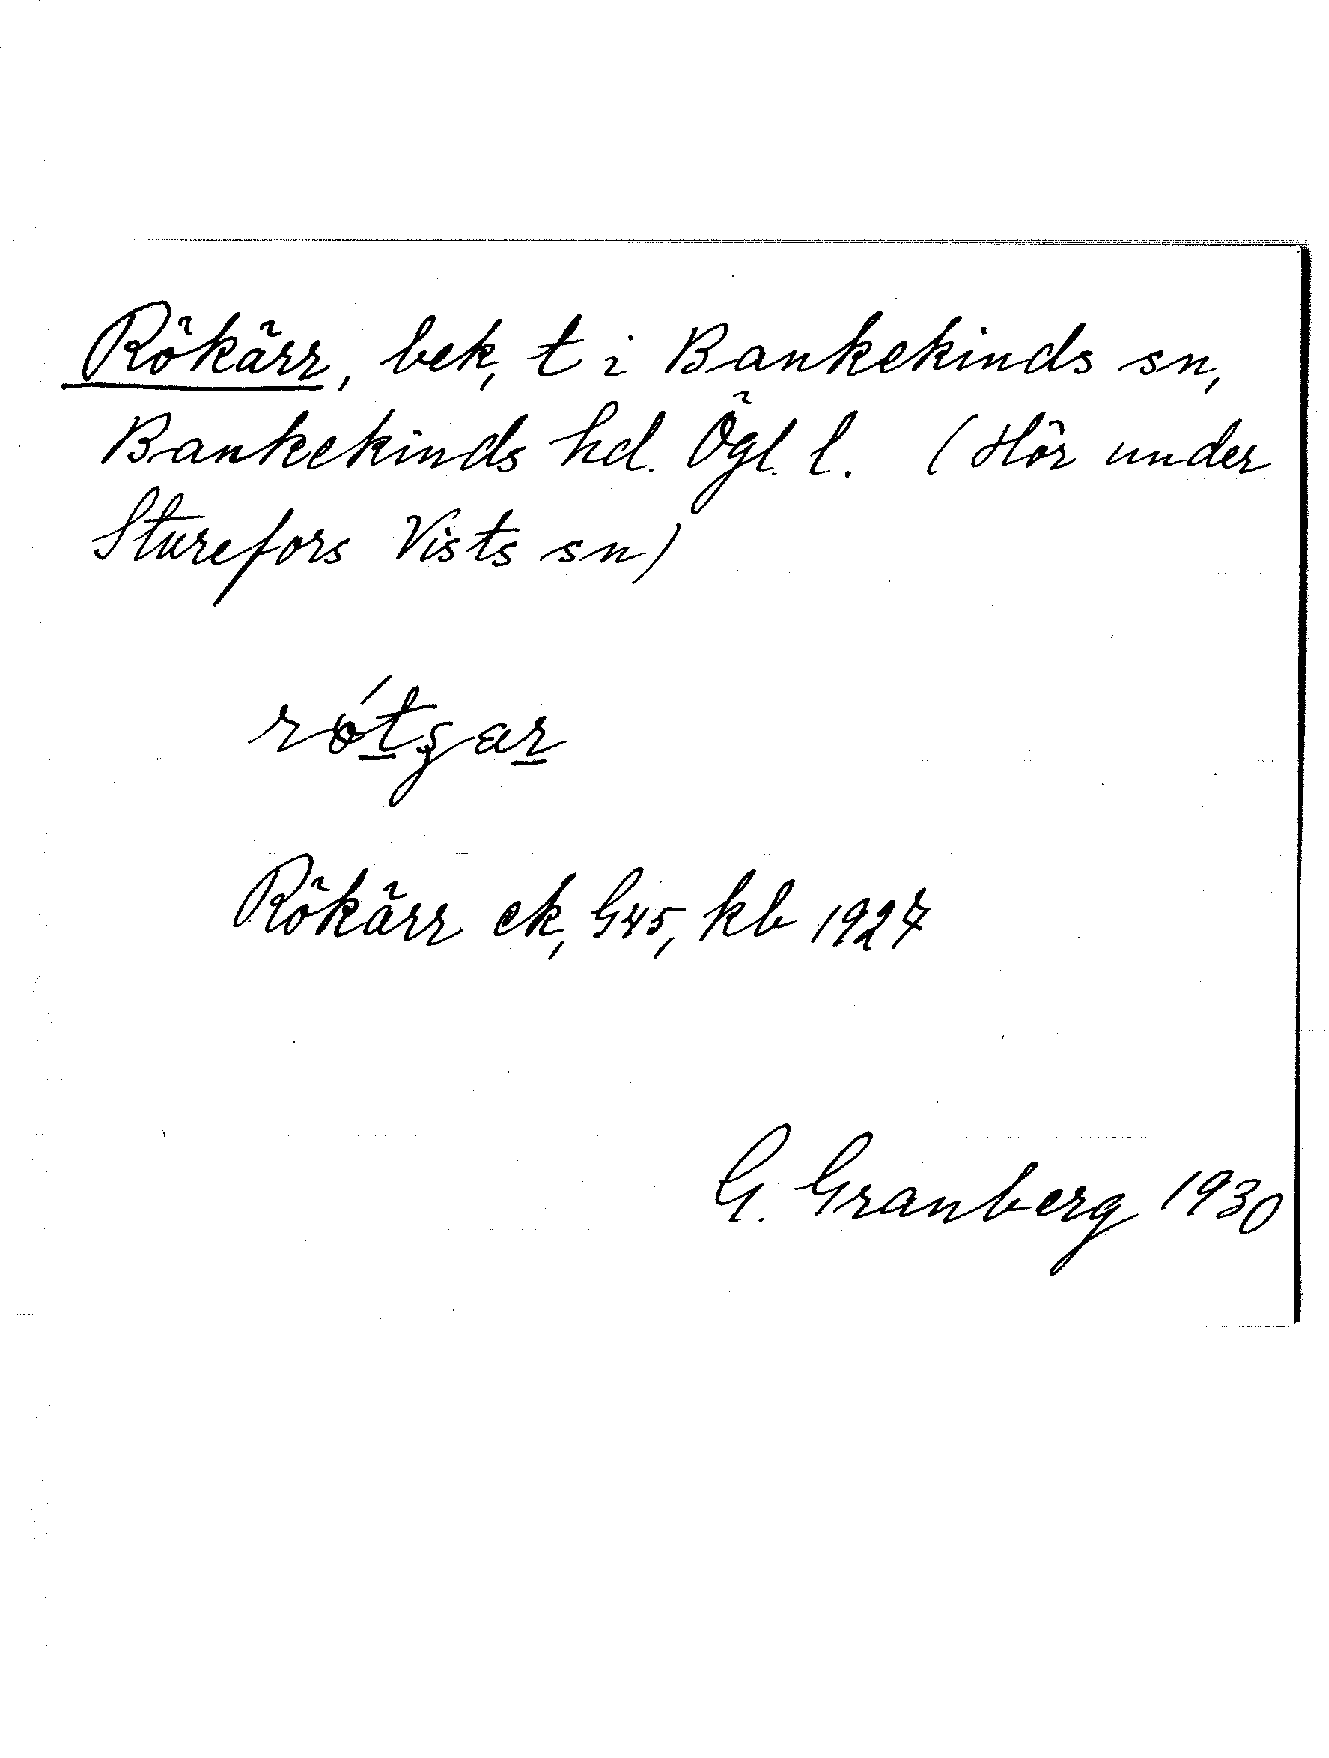 Rökärr, bek, t i Bankekinds sn,
Bankekinds hd. Ögl. l. (Hör under
Sturefors Vists sn)
Rökärr ek, G45, kb 1927
G. Granberg 1930